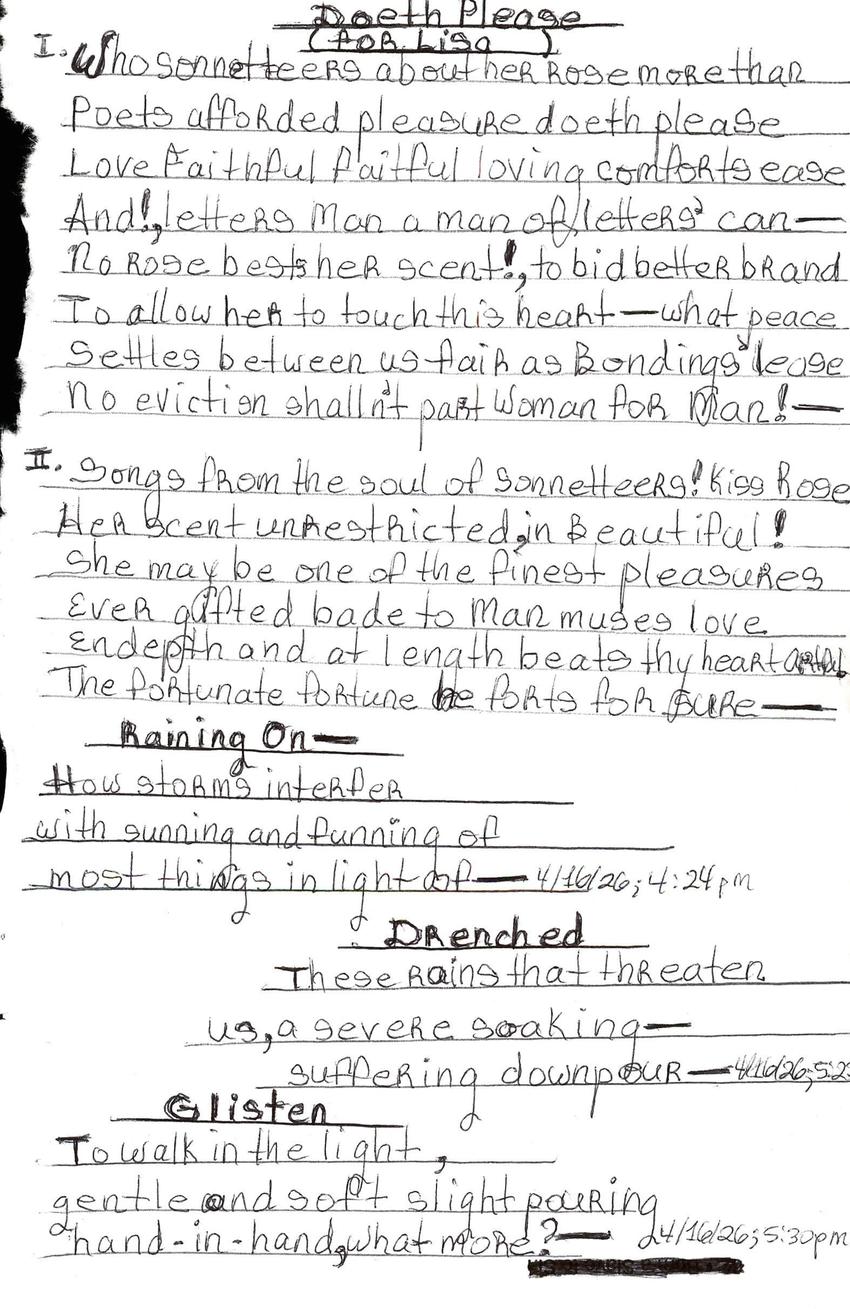 Doeth Please
(for Lisa )
I. Who sonnetteers about her Rose more than
Poets afforded pleasure doeth please
Love Faithful faitful loving comforts ease
And!, letters Man a man of letters' can—
No Rose bests her scent!, to bid better brand
To allow her to touch this heart—what peace
Settles between us flair as Bondings' lease
No eviction shalln't part Woman for Man!—
II. Songs from the soul of Sonnetteers! Kiss Rose
Her Scent unrestricted, in Beautiful!
She may be one of the finest pleasures
Ever gifted bade to Man muses love
Endepth and at length beats thy heart
The fortunate fortune he forts for sure—
Raining On—
How storms interfer
with sunning and funning of
most things in light of— 4/16/26; 4:24pm
Drenched
These rains that threaten
us, a severe soaking—
suffering downpour—4/16/26; 5:2
Glisten
To walk in the light,
gentle and soft slight pouring
hand-in-hand, what more?— 4/16/26; 5:30pm